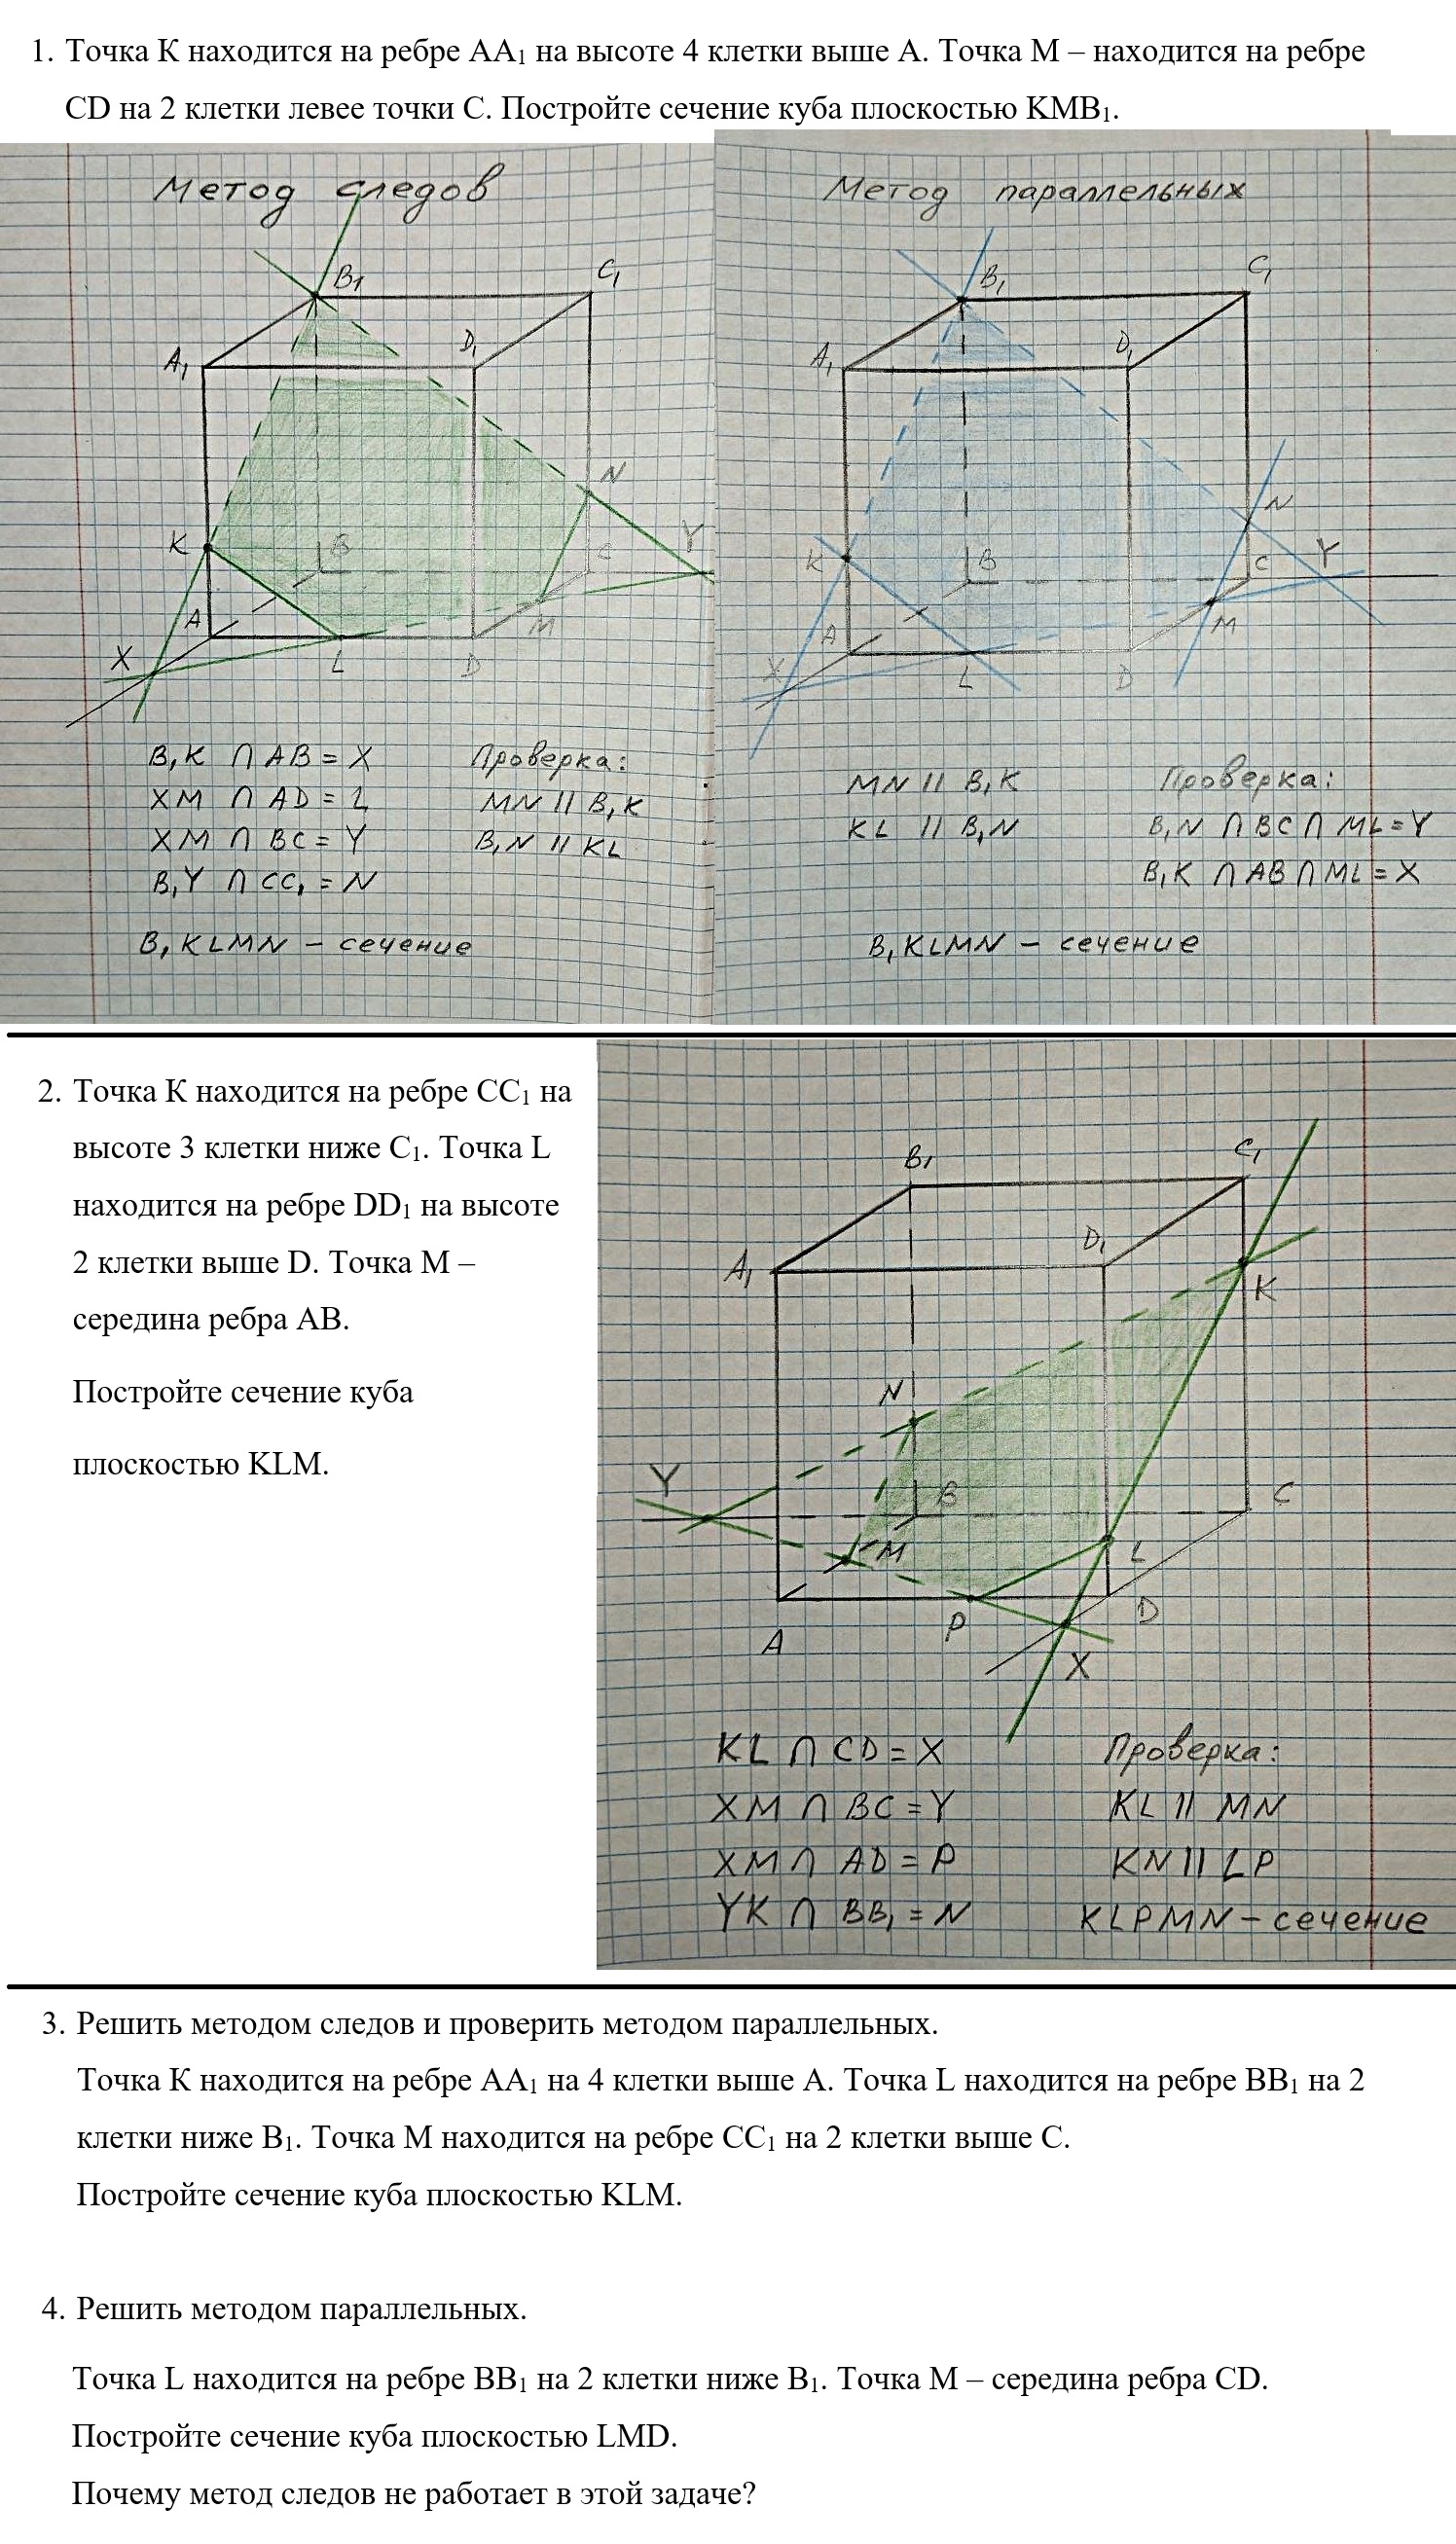 1. Точка К находится на ребре АА₁ на высоте 4 клетки выше А. Точка М – находится на ребре
CD на 2 клетки левее точки С. Постройте сечение куба плоскостью КМВ₁.
Метод следов
B₁
C₁
A₁
D₁
N
K
B
C
Y
A
M
X
L
D
B₁K ∩ AB = X
XM ∩ AD = L
XM ∩ BC = Y
B₁Y ∩ CC₁ = N
Проверка:
MN || B₁K
B₁N || KL
B₁KLMN – сечение
Метод параллельных
B₁
C₁
A₁
D₁
N
K
B
C
Y
A
M
X
L
D
MN || B₁K
KL || B₁N
Проверка:
B₁N ∩ BC ∩ ML = Y
B₁K ∩ AB ∩ ML = X
B₁KLMN – сечение
2. Точка К находится на ребре СС₁ на
высоте 3 клетки ниже С₁. Точка L
находится на ребре DD₁ на высоте
2 клетки выше D. Точка М –
середина ребра АВ.
Постройте сечение куба
плоскостью KLM.
B₁
C₁
A₁
D₁
K
N
Y
B
C
M
L
P
D
A
X
KL ∩ CD = X
XM ∩ BC = Y
XM ∩ AD = P
YK ∩ BB₁ = N
Проверка:
KL || MN
KN || LP
KLPMN – сечение
3. Решить методом следов и проверить методом параллельных.
Точка К находится на ребре АА₁ на 4 клетки выше А. Точка L находится на ребре ВВ₁ на 2
клетки ниже В₁. Точка М находится на ребре СС₁ на 2 клетки выше С.
Постройте сечение куба плоскостью KLM.
4. Решить методом параллельных.
Точка L находится на ребре ВВ₁ на 2 клетки ниже В₁. Точка М – середина ребра CD.
Постройте сечение куба плоскостью LMD.
Почему метод следов не работает в этой задаче?